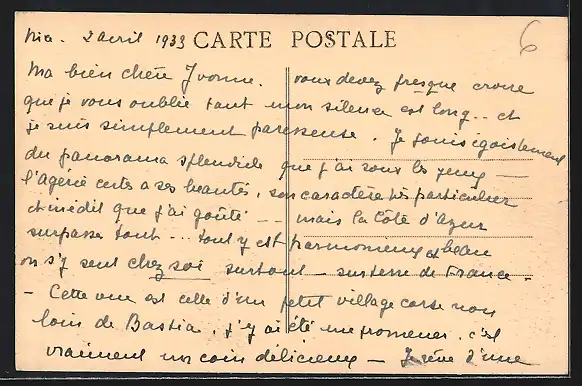 Nice. 2 avril 1933 CARTE POSTALE
6
Ma bien chère Yvonne. vous devez presque croire
que je vous oublie tant mon silence est long.. et
je suis simplement paresseuse. Je jouis égoïstement
du panorama splendide que j'ai sous les yeux —
l'Algérie certes a ses beautés, son caractère très particulier
et inédit que j'ai goûté -- mais la Côte d'Azur
surpasse tout... tout y est harmonieux et beau
on s'y sent chez soi surtout — sur terre de France -
- Cette vue est celle d'un petit village corse non
loin de Bastia, j'y ai été me promener. c'est
vraiment un coin délicieux — Je rêve d'une